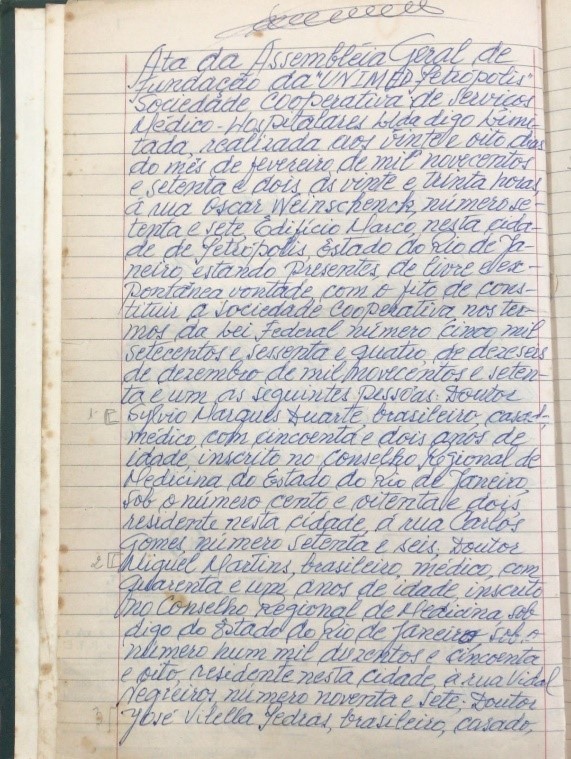 Ata da Assembléia Geral de
Fundação da "UNIMED Petrópolis"
Sociedade Cooperativa de Serviços
Médico-Hospitalares Ltda digo Limi-
tada, realizada aos vinte e oito dias
do mês de fevereiro de mil novecentos
e setenta e dois, às vinte e trinta horas,
à rua Oscar Weinschenck, número se-
tenta e sete, Edifício Marco, nesta cida-
de de Petrópolis, Estado do Rio de Ja-
neiro, estando presentes, de livre e ex-
pontânea vontade, com o fito de cons-
tituir a Sociedade Cooperativa nos ter-
mos da Lei Federal número cinco mil
setecentos e sessenta e quatro, de dezeseis
de dezembro de mil novecentos e seten-
ta e um, as seguintes pessoas: Doutor
1 Sylvio Marques Duarte, brasileiro, casado,
médico, com cincoenta e dois anos de
idade inscrito no Conselho Regional de
Medicina do Estado do Rio de Janeiro,
sob o número cento e oitenta e dois,
residente nesta cidade, à rua Carlos
Gomes, número setenta e seis, Doutor
2 Miguel Martins, brasileiro, médico, com
quarenta e um, anos de idade, inscrito
no Conselho Regional de Medicina, sob
digo do Estado do Rio de Janeiro sob o
número hum mil duzentos e cincoenta
e oito, residente nesta cidade, à rua Vidal
Negreiros número noventa e sete; Doutor
3 José Vilella Pedras, brasileiro, casado,